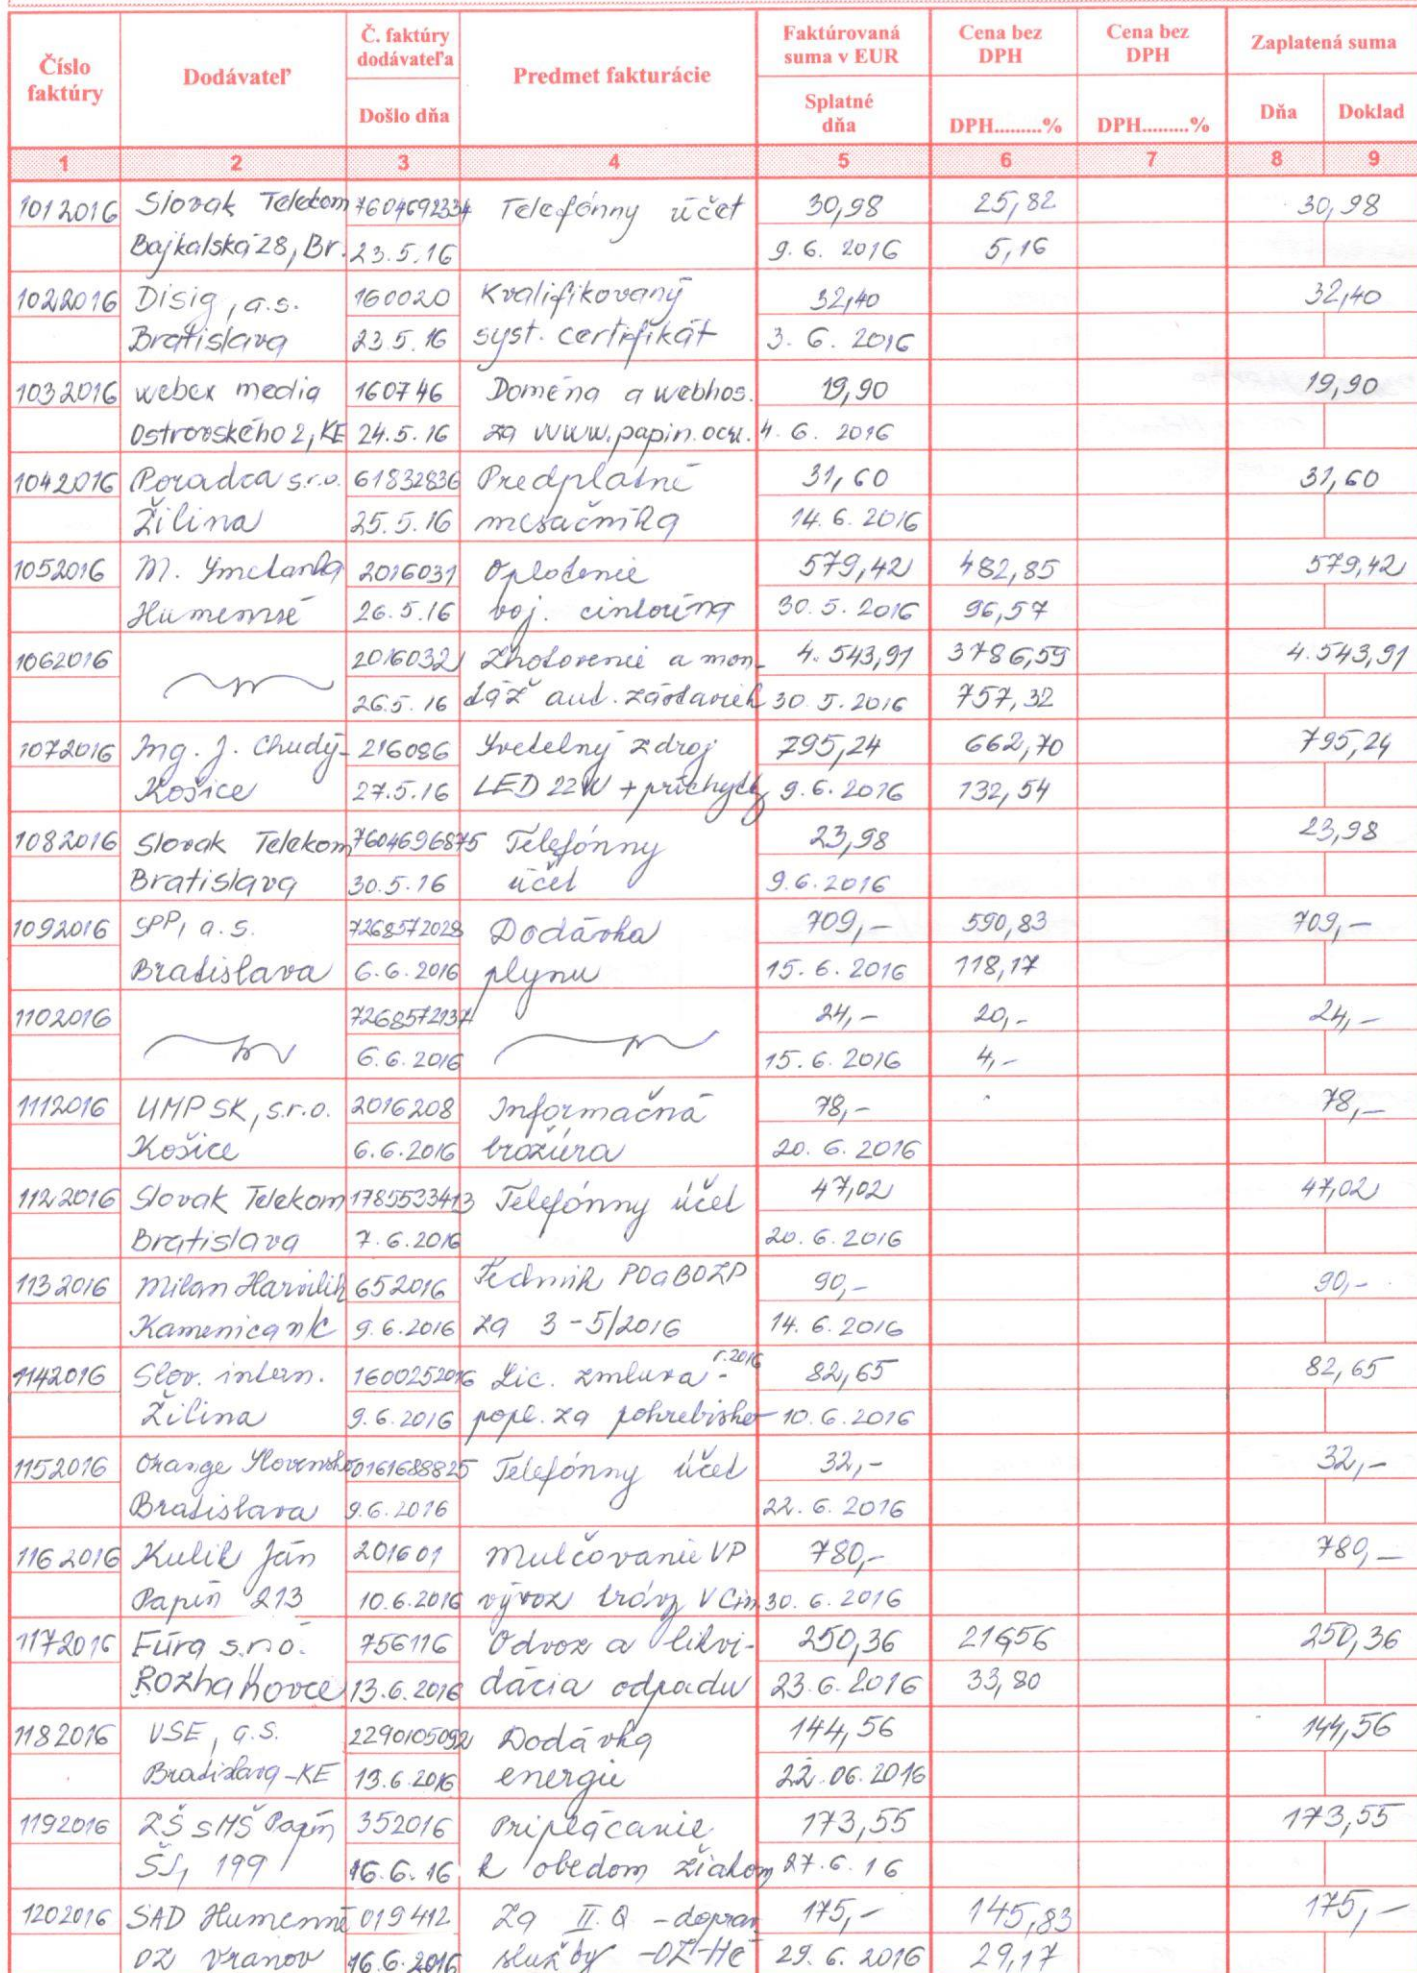 Číslo faktúry | Dodávateľ | Č. faktúry dodávateľa | Predmet fakturácie | Faktúrovaná suma v EUR | Cena bez DPH | Cena bez DPH | Zaplatená suma
Došlo dňa | Splatné dňa | DPH.........% | DPH.........% | Dňa | Doklad
1 | 2 | 3 | 4 | 5 | 6 | 7 | 8 | 9
1012016 | Slovak Telekom | 7604692334 | Telefónny účet | 30,98 | 25,82 | 30,98
Bajkalská 28, Br. | 23.5.16 | 9.6. 2016 | 5,16
1022016 | Disig, a.s. | 160020 | Kvalifikovaný | 32,40 | 32,40
Bratislava | 23.5.16 | syst. certifikát | 3. 6. 2016
1032016 | webex media | 160746 | Doména a webhos. | 19,90 | 19,90
Ostrovského 2, KE | 24.5.16 | za www.papin.ocu. | 4. 6. 2016
1042016 | Poradca s.r.o. | 61832836 | Predplatné | 31,60 | 31,60
Žilina | 25.5.16 | mesačníka | 14. 6. 2016
1052016 | M. Smetanka | 2016031 | Oplotenie | 579,42 | 482,85 | 579,42
Humenné | 26.5.16 | voj. cintorína | 30. 5. 2016 | 96,57
1062016 | 2016032 | Zhotovenie a mon- | 4.543,91 | 3786,59 | 4.543,91
26.5.16 | táž aut. zástaviek | 30. 5. 2016 | 757,32
1072016 | Ing. J. Chudý- | 216086 | Svetelný zdroj | 795,24 | 662,70 | 795,24
Košice | 27.5.16 | LED 22W + príchytky | 9.6.2016 | 132,54
1082016 | Slovak Telekom | 7604696875 | Telefónny | 23,98 | 23,98
Bratislava | 30.5.16 | účet | 9.6.2016
1092016 | SPP, a.s. | 7268572028 | Dodávka | 709,- | 590,83 | 709,-
Bratislava | 6.6.2016 | plynu | 15.6.2016 | 118,17
1102016 | 7268572137 | 24,- | 20,- | 24,-
6.6.2016 | 15.6.2016 | 4,-
1112016 | UMP SK, s.r.o. | 2016208 | Informačná | 78,- | 78,-
Košice | 6.6.2016 | brožúra | 20. 6. 2016
1122016 | Slovak Telekom | 1785533413 | Telefónny účet | 47,02 | 47,02
Bratislava | 7.6.2016 | 20.6.2016
1132016 | Milan Harvilik | 652016 | Technik POaBOZP | 90,- | 90,-
Kamenica n/C | 9.6.2016 | za 3-5/2016 | 14. 6. 2016
1142016 | Slov. intern. | 1600252016 | Lic. zmluva - r.2016 | 82,65 | 82,65
Žilina | 9.6.2016 | popl. za pohrebisko | 10.6.2016
1152016 | Orange Slovensko | 0161688825 | Telefónny účet | 32,- | 32,-
Bratislava | 9.6.2016 | 22.6.2016
1162016 | Kulik Ján | 201601 | Mulčovanie VP | 780,- | 780,-
Papín 213 | 10.6.2016 | vývoz trávy V Cin. | 30. 6. 2016
1172016 | Fúra s.r.o. | 756116 | Odvoz a likvi- | 250,36 | 216,56 | 250,36
Rozhanovce | 13.6.2016 | dácia odpadu | 23.6.2016 | 33,80
1182016 | VSE, a.s. | 2290105092 | Dodávka | 144,56 | 144,56
Bratislava-KE | 13.6.2016 | energie | 22.06.2016
1192016 | ZŠ s MŠ Papín | 352016 | Priplácanie | 173,55 | 173,55
ŠJ, 199 | 16.6.16 | k obedom žiakom | 27.6.16
1202016 | SAD Humenné | 019412 | Za II.Q - doprav | 175,- | 145,83 | 175,-
OZ Vranov | 16.6.2016 | služby -OZ-HE | 29.6.2016 | 29,17